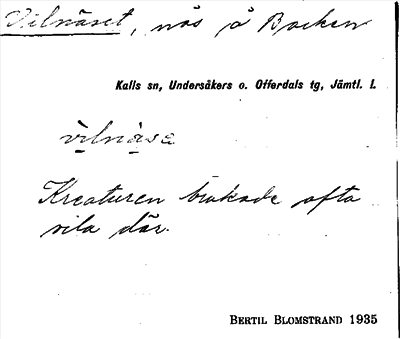 Vilnäset, näs å Backen
Kalls sn, Undersåkers o. Offerdals tg, Jämtl. l.
vilnäse
Kreaturen brukade ofta
vila där.
BERTIL BLOMSTRAND 1935